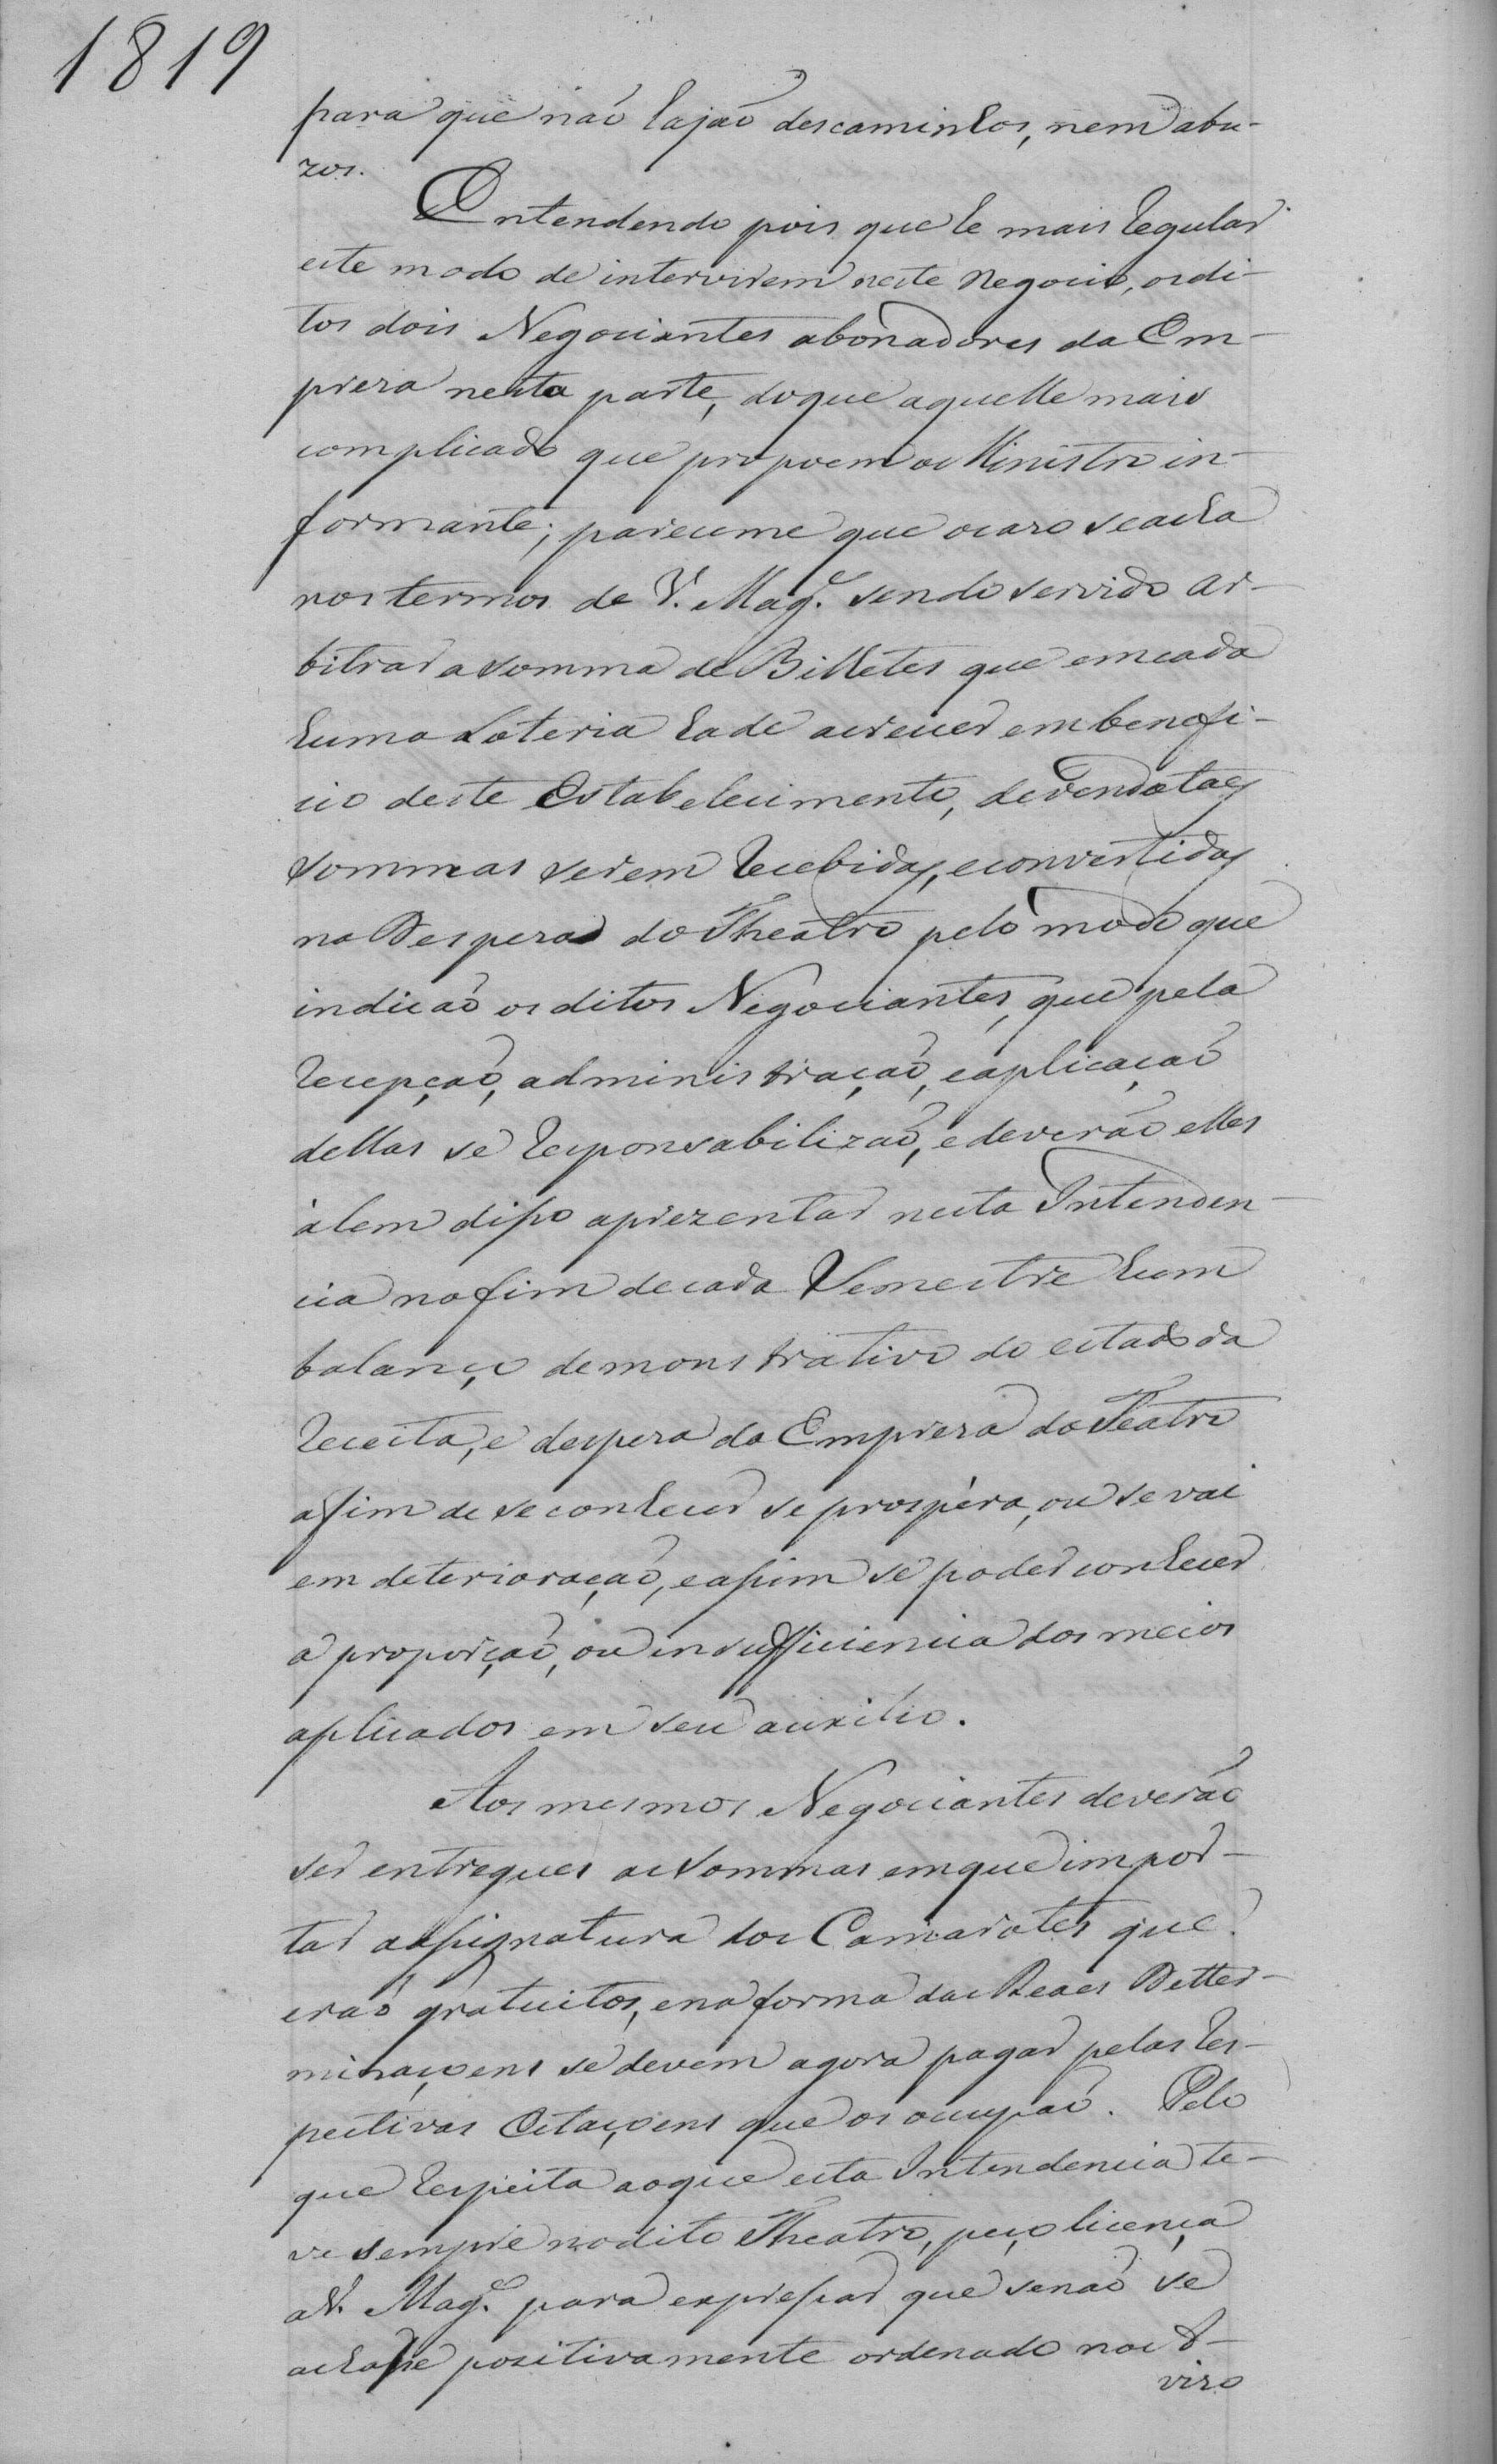 1819
para que naõ hajaõ descaminhos, nem abu-
zos.
Entendendo pois que he mais regular
este modo de intervirem neste Negocio, os di-
tos dois Negociantes abonadores da Em-
preza nesta parte, do que aquelle mais
complicado que propoem o Ministro in-
formante; pareceme que o cazo se acha
nos termos de V. Mag.e sendo servido ar-
bitrar a somma de Bilhetes que em cada
huma Loteria hade acrecer em benefi-
cio deste Estabelecimento, devendo taes
sommas serem recebidas, e convertidas
na Despeza do Theatro pelo modo que
indicaõ os ditos Negociantes, que pela
recepçaõ, administraçaõ, e aplicaçaõ
dellas se responsabilizaõ, e deveráõ elles
àlem disso aprezentar nesta Intenden-
cia no fim de cada Semestre hum
balanço demonstrativo do estado da
receita, e despeza da Empreza do Teatro
afim de se conhecer se prospéra, ou se vai
em deterioraçaõ, e assim se poder conhecer
a proporçaõ, ou insufficiencia dos meios
aplicados em seu auxilio.
Aos mesmos Negociantes deveráõ
ser entregues as sommas em que impor-
tar a assignatura dos Camarotes que
eraõ gratuitos, e na forma das Reaes Deter-
minaçoens se devem agora pagar pelas res-
pectivas Estaçoens que os occupaõ. Pelo
que respeita ao que esta Intendencia te-
ve sempre no dito Theatro, peço licença
a V. Mag.e para expressar que senaõ se
achasse positivamente ordenado no A-
vizo